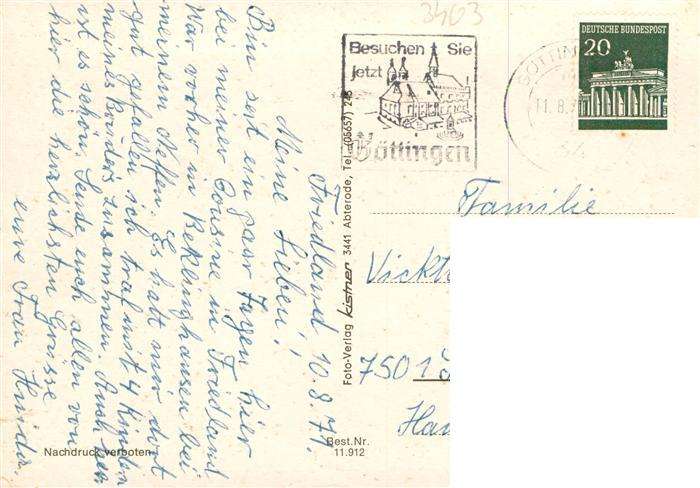 3403
Besuchen Sie
jetzt
Göttingen
DEUTSCHE BUNDESPOST
20
GÖTTIN
11.8.
Friedland 10.8.71.
Meine Lieben!
Bin seit ein paar Tagen hier
bei meiner Cousine in Friedland.
War vorher in Recklinghausen bei
meinem Neffen. Es hatt mir dort
gut gefallen ich traf mit 4 Kinder
meines Bruders zusammen. Auch hier
ist es schön. Sende euch allen von
hier die herzlichsten Grüsse
eure Frau
Foto-Verlag kistner 3441 Abterode, Tel. (05657) 246
Familie
Vickt
7501
Ha
Nachdruck verboten
Best.Nr.
11.912